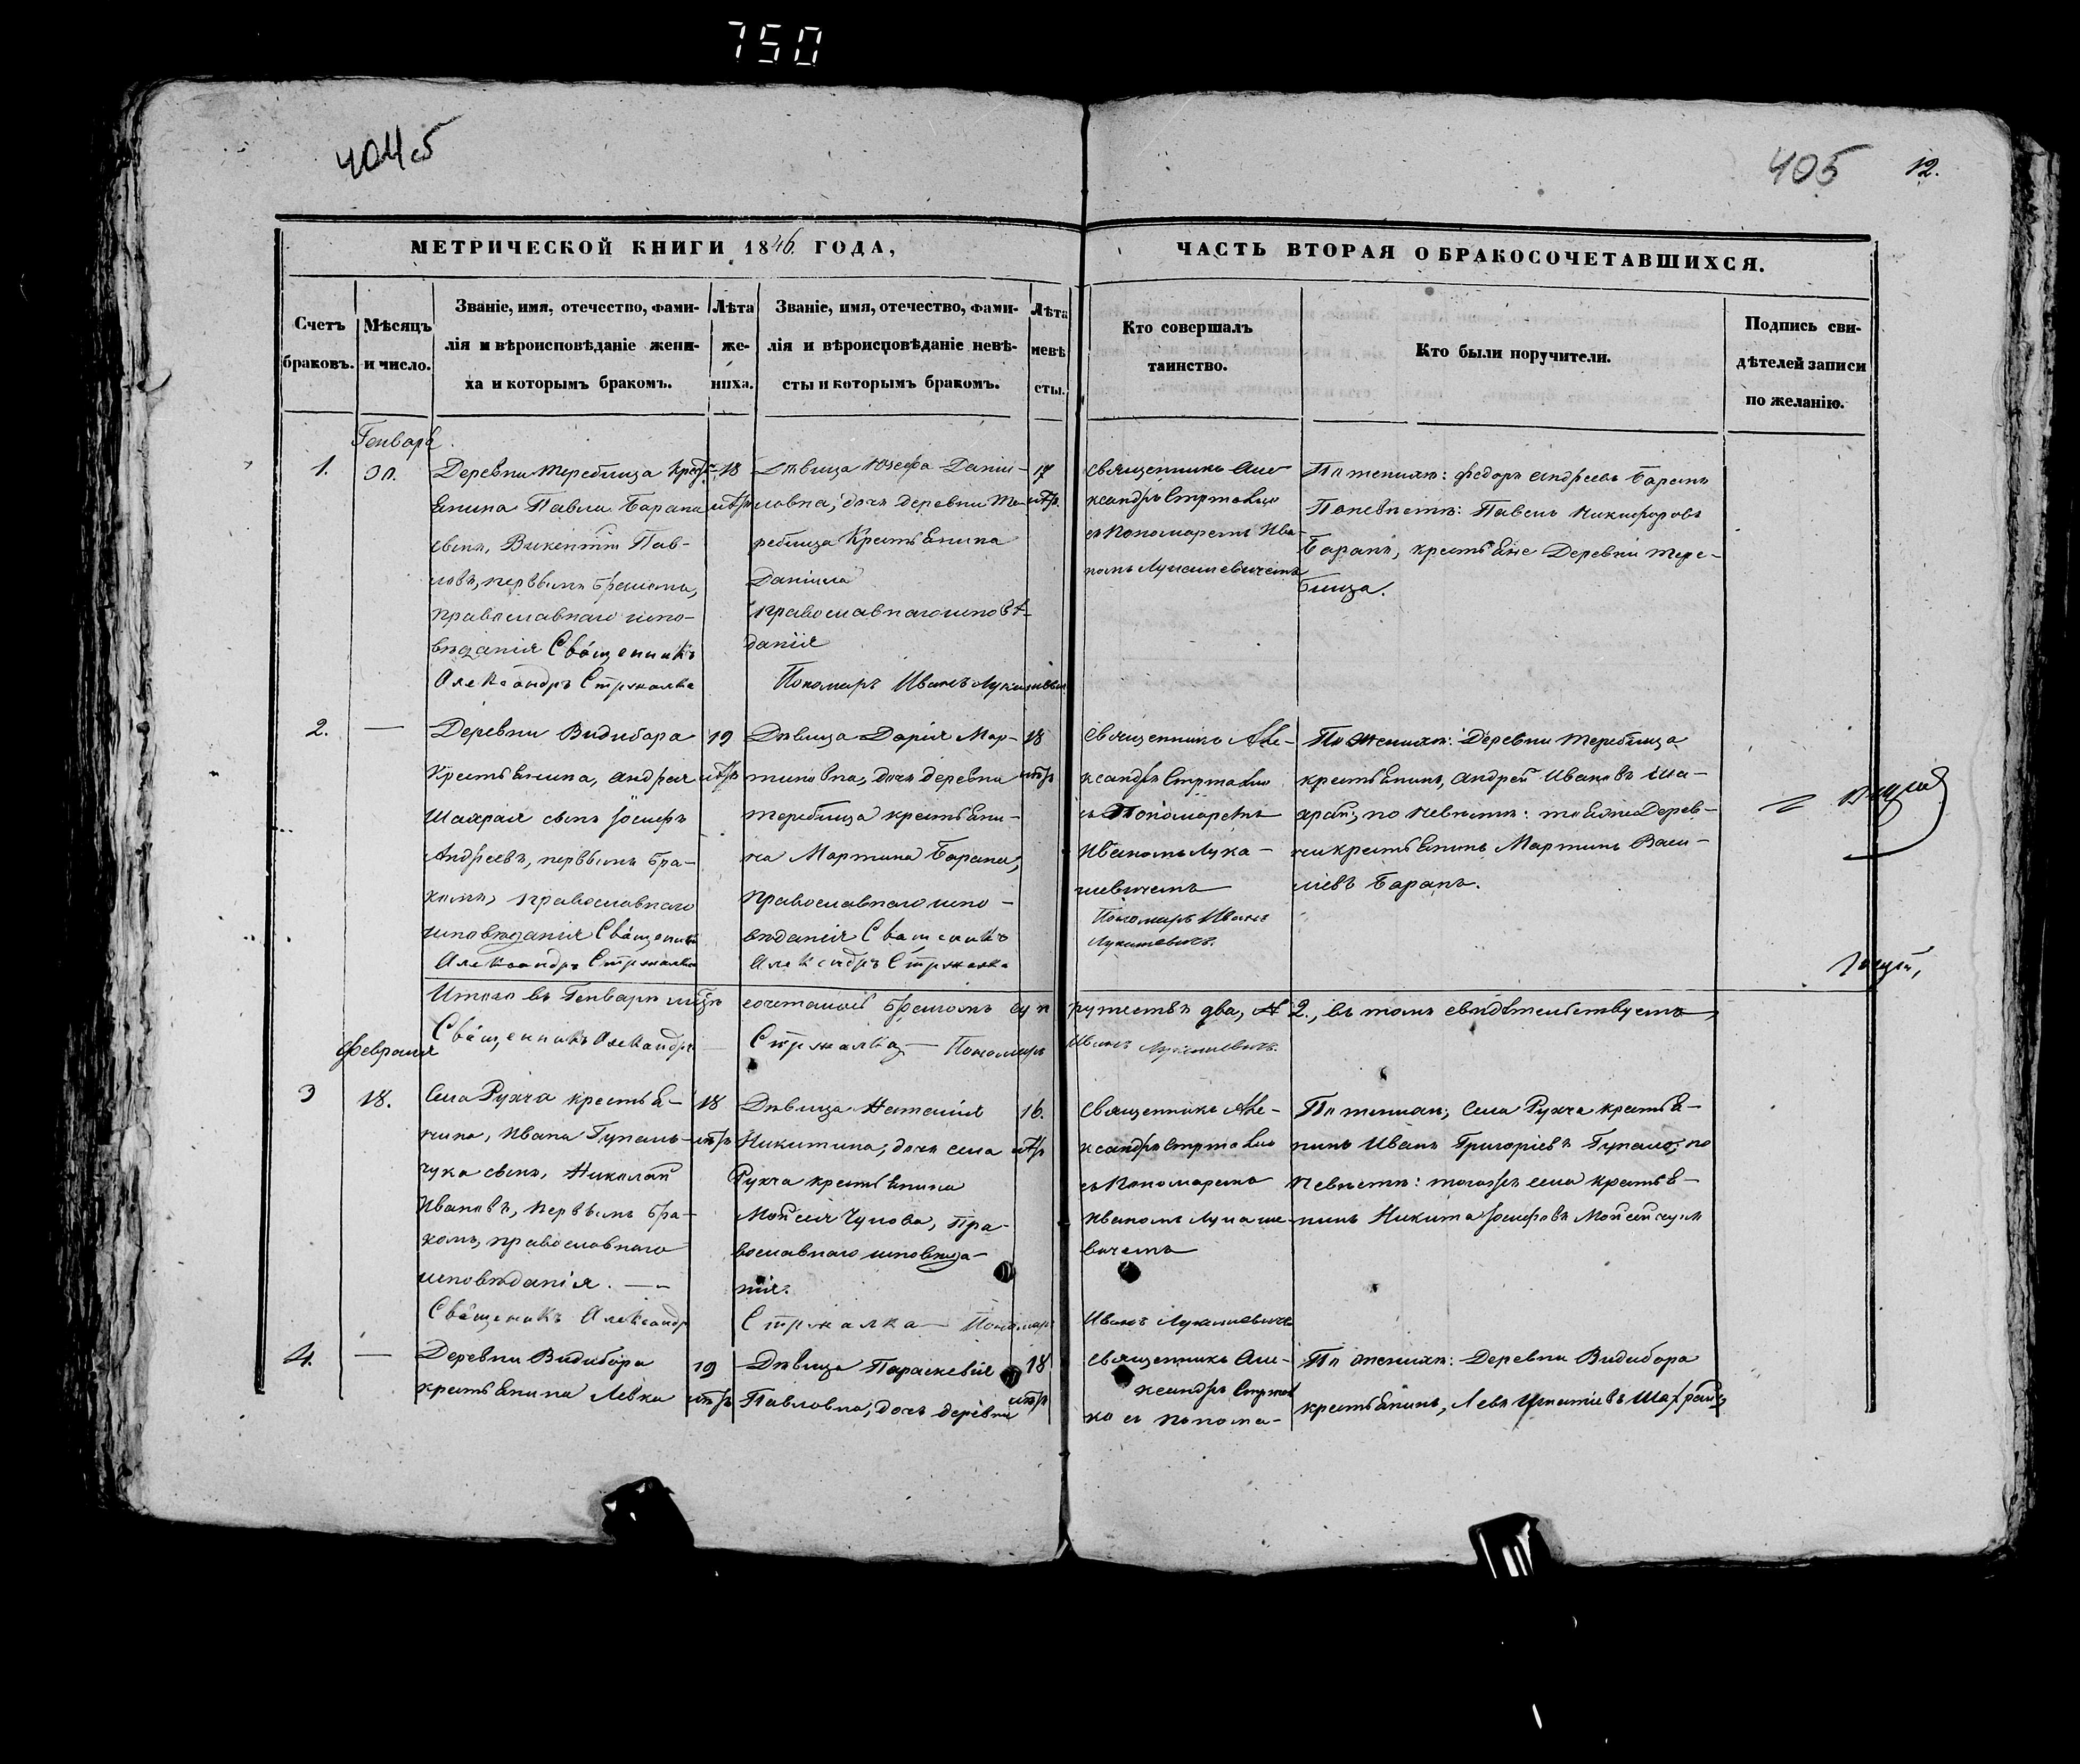 750
404об
405
12.
МЕТРИЧЕСКОЙ КНИГИ 1846. ГОДА,
ЧАСТЬ ВТОРАЯ О БРАКОСОЧЕТАВШИХСЯ.
Счетъ
браковъ.
Мѣсяцъ
и число.
Званіе, имя, отечество, фами-
лія и вѣроисповѣданіе жени-
ха и которымъ бракомъ.
Лѣта
же-
ниха.
Званіе, имя, отечество, фами-
лія и вѣроисповѣданіе невѣ-
сты и которымъ бракомъ.
Лѣта
невѣ
сты.
Кто совершалъ
таинство.
Кто были поручители.
Подпись сви-
дѣтелей записи
по желанію.
Генваря
1.
30.
Деревни Теребища Крест-
янина Павла Барана
сынъ, Викентій Пав-
ловъ, первымъ бракомъ,
православнаго испо-
вѣданія Священникъ
Александръ Стржалка
18
лѣтъ
Дѣвица Юзефа Дани-
ловна, дочь деревни Те-
ребища Крестьянина
Даніила
православнаго исповѣ-
данія
Пономаръ Иванъ Лукашевич
17
лѣтъ.
Священникъ Але-
ксандръ Стржалко
съ Пономаремъ Ива-
номъ Лукашевичемъ
По женихѣ: Федоръ Андреевъ Баранъ
По невѣстѣ: Павелъ Никифоровъ
Баранъ, крестьяне Деревни Тере-
бища.
2.
—
Деревни Видибора
Крестьянина, Андрея
Шахрая сынъ Іосифъ
Андреевъ, первымъ бра-
комъ, православнаго
исповѣданія Священникъ
Александръ Стржалка
19
лѣтъ
Дѣвица Дарія Мар-
тиновна, дочь деревни
Теребища крестьяни-
на Мартина Барана,
православнаго испо-
вѣданія Священникъ
Александръ Стржалка
18
лѣтъ
Священникъ Але-
ксандръ Стржалко
съ Пономаремъ
Иваномъ Лука-
шевичемъ
Пономаръ Иванъ
Лукашевичъ.
По женихѣ: Деревни Теребища
крестьянинъ, Андрей Ивановъ Ша-
храй; по невѣстѣ: тояже Дерев-
ни крестьянинъ Мартинъ Васи-
лiевъ Баранъ.
Итого въ Генварѣ мѣцѣ сочеталось бракомъ суп ружествъ два, № 2., въ томъ свидѣтельствуемъ,
Священникъ Александръ Стржалка — Пономаръ Иванъ Лукашевичъ.
Февраля
3
18.
Села Рухча крестья-
нина, Ивана Гупаль-
чука сынъ, Николай
Ивановъ, первымъ бра-
комъ, православнаго
исповѣданія. —
Священикъ Александр
18
лѣтъ
Дѣвица Наталія
Никитина, дочь села
Рухча крестьянина
Мойсея Чулова, Пра-
вославнаго исповѣда-
нія.
Стржалка — Пономаръ
16.
лѣтъ
Священникъ Але-
ксандръ Стржалко
съ Пономаремъ
Иваномъ Лукаше-
вичемъ
Иванъ Лукашевичъ
По женихѣ; Села Рухча крестья-
нинъ Иванъ Григоріевъ Гупало, по
невѣстѣ: тогожъ села крестья-
нинъ Никита Іосифовъ Мойсейчукъ
4.
—
Деревни Видибора
крестьянина Левка
19
лѣтъ
Дѣвица Параскевія
Павловна, дочь деревни
18
лѣтъ
Священникъ Але-
ксандръ Стржал
ко съ понома-
По женихѣ: Деревни Видибора
крестьянинъ, Левъ Игнатіевъ Шахрай;